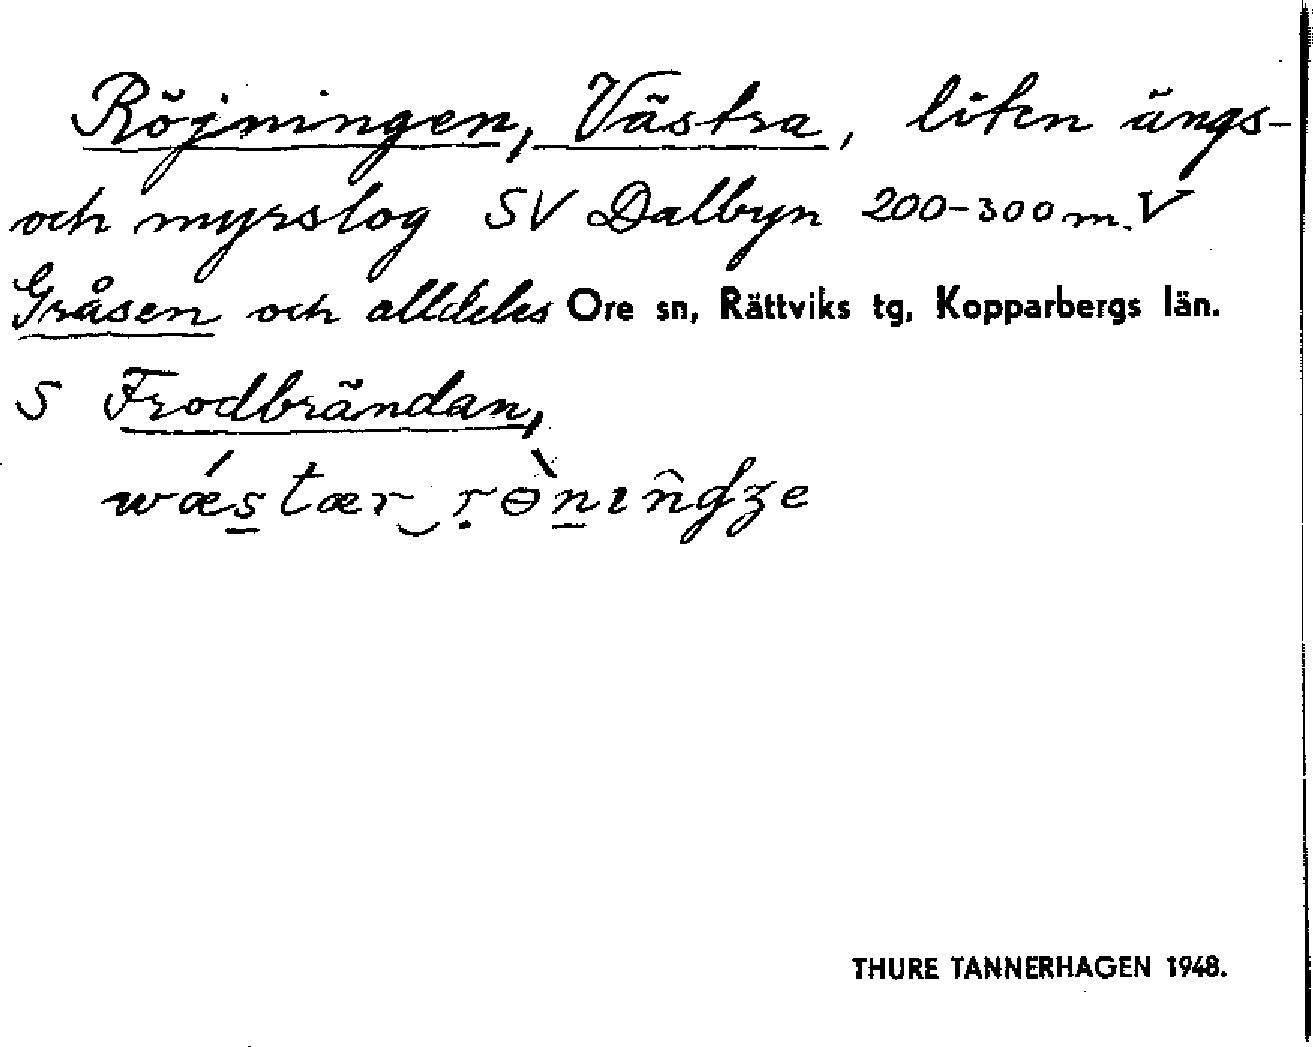 Röjningen, Västra, liten ängs-
och myrslog SV Dalbyn 200-300 m. V
Gråsen och alldeles Ore sn, Rättviks tg, Kopparbergs län.
S Frodbrändan,
wǽs̲tær‿ṛɵ̀n̲ɩn̂gʒe
THURE TANNERHAGEN 1948.